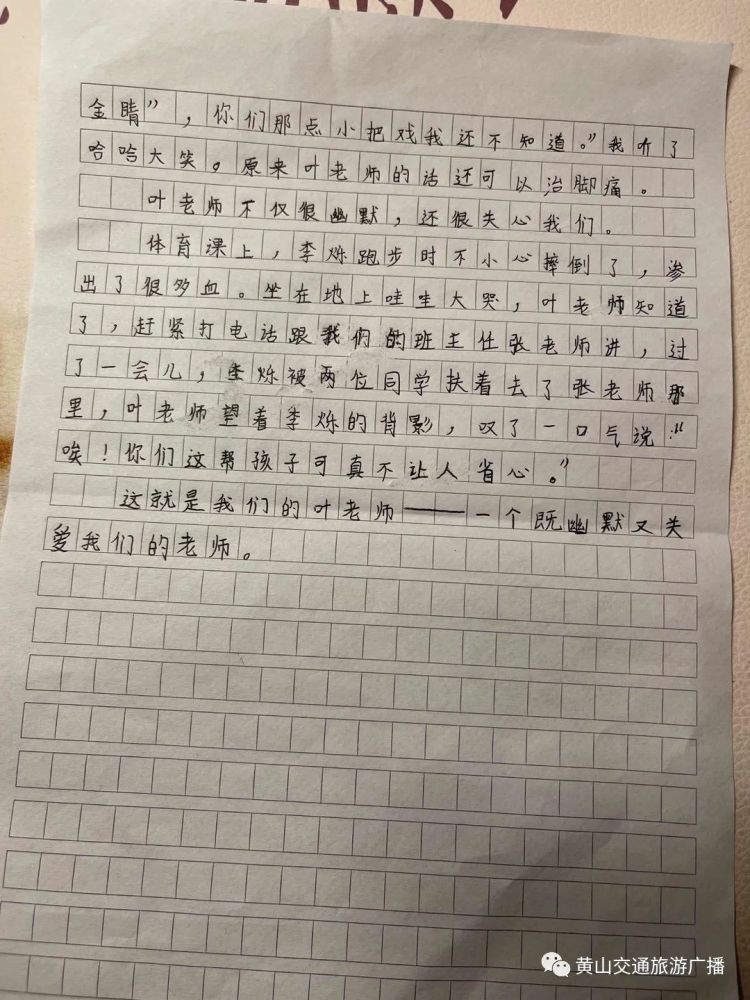 金睛”，你们那点小把戏我还不知道。”我听了
哈哈大笑。原来叶老师的话还可以治脚痛。
叶老师不仅很幽默，还很关心我们。
体育课上，李烁跑步时不小心摔倒了，渗
出了很多血。坐在地上哇哇大哭，叶老师知道
了，赶紧打电话跟我们的班主任张老师讲，过
了一会儿，李烁被两位同学扶着去了张老师那
里，叶老师望着李烁的背影，叹了一口气说：“
唉！你们这帮孩子可真不让人省心。”
这就是我们的叶老师——一个既幽默又关
爱我们的老师。
黄山交通旅游广播